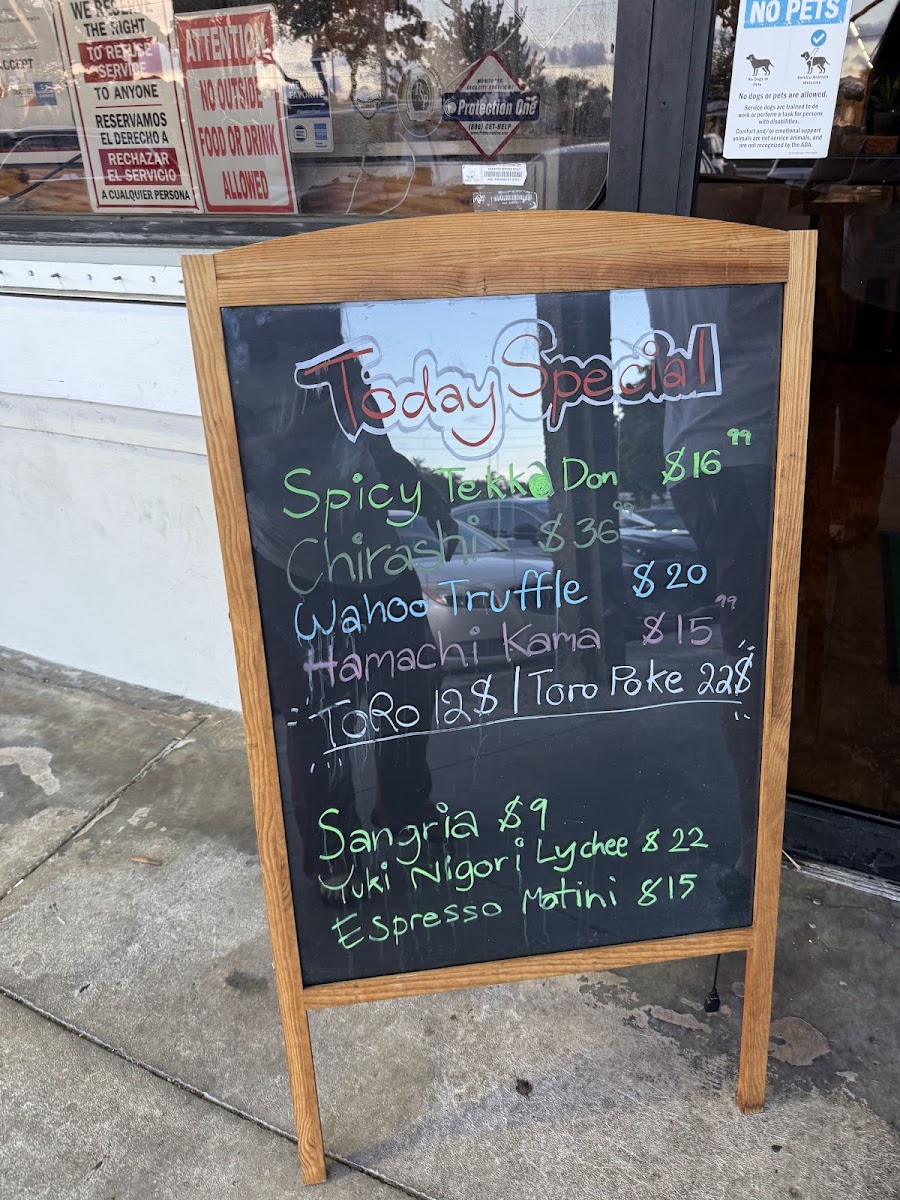 WE RESERVE
THE RIGHT
TO REFUSE
SERVICE
TO ANYONE
RESERVAMOS
EL DERECHO A
RECHAZAR
EL SERVICIO
A CUALQUIER PERSONA
ATTENTION
NO OUTSIDE
FOOD OR DRINK
ALLOWED
Protection One
NO PETS
No Dogs or Pets
Service Animals Welcome
No dogs or pets are allowed.
Service dogs are trained to do
work or perform a task for persons
with disabilities.
Comfort and/or emotional support
animals are not service animals, and
are not recognized by the ADA.
Today Special
Spicy Tekka Don $16 99
Chirashi $36 99
Wahoo Truffle $20
Hamachi Kama $15 99
ToRo 12$ | Toro Poke 22$
Sangria $9
Yuki Nigori Lychee $22
Espresso Matini $15